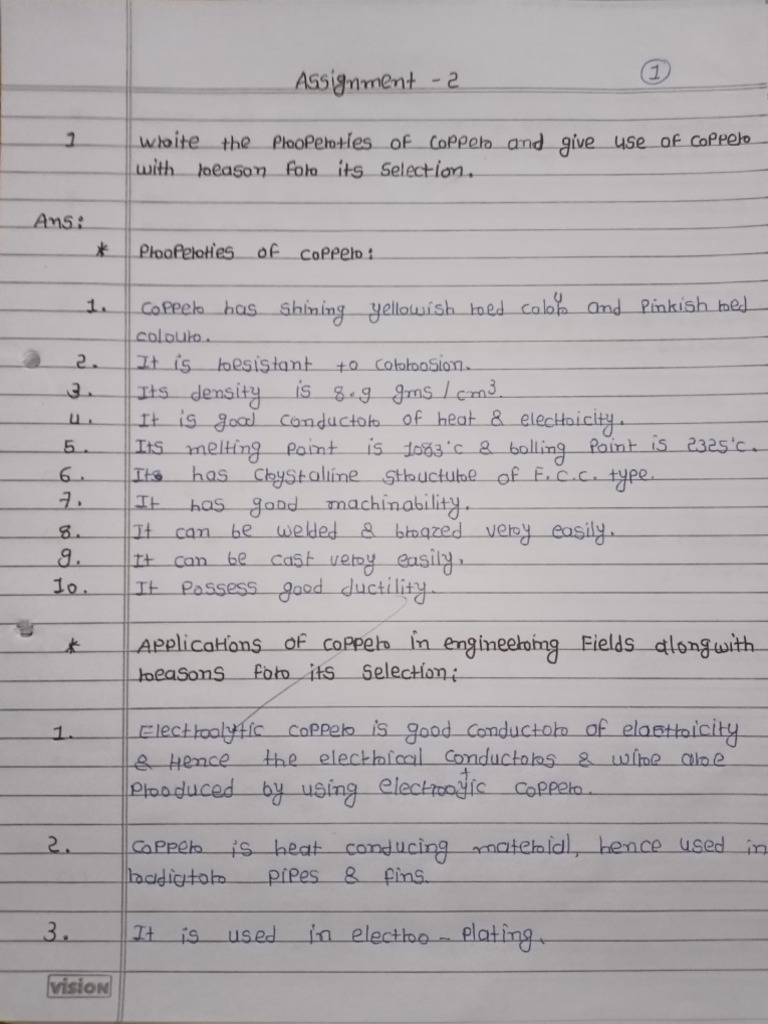 Assignment - 2
1
1 Write the Properties of Copper and give use of Copper
with reason for its Selection.
Ans:
* Properties of Copper:
1. Copper has shining yellowish red colour and Pinkish red
colour.
2. It is resistant to corrosion.
3. Its density is 8.9 gms/cm³.
4. It is good conductor of heat & electricity.
5. Its melting Point is 1083°c & boiling Point is 2325°c.
6. Its has Crystalline structure of F.C.C. type.
7. It has good machinability.
8. It can be welded & brazed very easily.
9. It can be cast very easily.
10. It Possess good ductility.
* Applications of Copper in engineering Fields alongwith
reasons for its Selection:
1. Electrolytic copper is good conductor of elactricity
& Hence the electrical conductors & wire are
Produced by using electroytic Copper.
2. Copper is heat conducing material, hence used in
radiator pipes & fins.
3. It is used in electro - plating.
vision